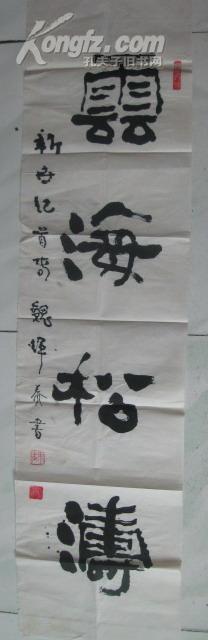 Kongfz.com
孔夫子旧书网
雲海松濤
新世纪首春 魏輝泰書